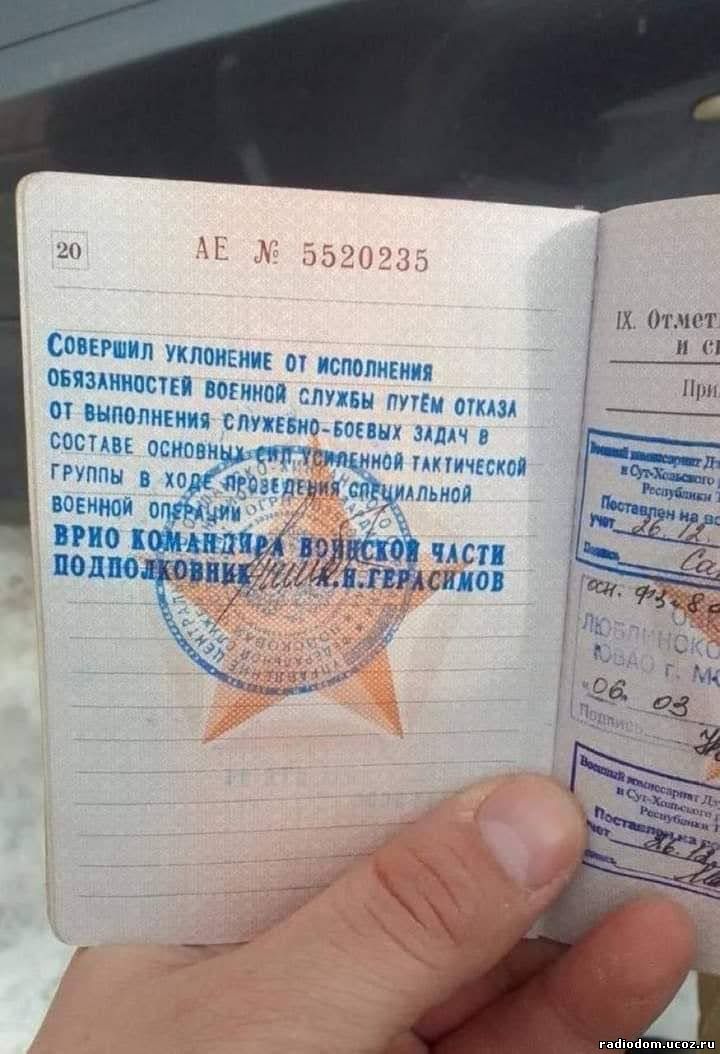 20
АЕ № 5520235
СОВЕРШИЛ УКЛОНЕНИЕ ОТ ИСПОЛНЕНИЯ
ОБЯЗАННОСТЕЙ ВОЕННОЙ СЛУЖБЫ ПУТЁМ ОТКАЗА
ОТ ВЫПОЛНЕНИЯ СЛУЖЕБНО-БОЕВЫХ ЗАДАЧ В
СОСТАВЕ ОСНОВНЫХ СИЛ УСИЛЕННОЙ ТАКТИЧЕСКОЙ
ГРУППЫ В ХОДЕ ПРОВЕДЕНИЯ СПЕЦИАЛЬНОЙ
ВОЕННОЙ ОПЕРАЦИИ
ВРИО КОМАНДИРА ВОИНСКОЙ ЧАСТИ
ПОДПОЛКОВНИК Н.ГЕРАСИМОВ
УПРАВЛЕНИЕ ЦЕНТРАЛ
IX. Отмет
и с
При
Военный комиссариат Д
и Сут-Хольского
Республики
Поставлен на
учет 26.12.
Подпись
осн. ФЗ
ЛЮБЛИНСКО
ЮВАО г. М
06. 03
Подпись
Военный комиссариат Д
и Сут-Хольского
Республики
Поставлен на
учет 26.12
radiodom.ucoz.ru